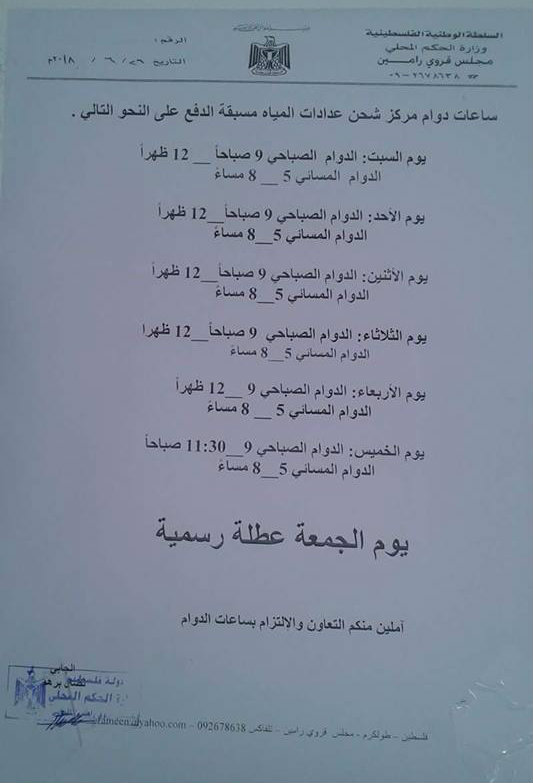 السلطة الوطنية الفلسطينية
وزارة الحكم المحلي
مجلس قروي رامين
٠٩-٢٦٧٨٦٣٨
الرقم:
التاريخ ٢٦/ ٦ / ٢٠١٨م
ساعات دوام مركز شحن عدادات المياه مسبقة الدفع على النحو التالي .
يوم السبت: الدوام الصباحي 9 صباحاً __ 12 ظهراً
الدوام المسائي 5 __ 8 مساءً
يوم الأحد: الدوام الصباحي 9 صباحاً__12 ظهراً
الدوام المسائي 5__8 مساءً
يوم الأثنين: الدوام الصباحي 9 صباحاً__12 ظهراً
الدوام المسائي 5__8 مساءً
يوم الثلاثاء: الدوام الصباحي 9 صباحاً__12 ظهرا
الدوام المسائي 5__8 مساءً
يوم الأربعاء: الدوام الصباحي 9 __12 ظهراً
الدوام المسائي 5 __ 8 مساءً
يوم الخميس: الدوام الصباحي 9__11:30 صباحاً
الدوام المسائي 5__8 مساءً
يوم الجمعة عطلة رسمية
آملين منكم التعاون والإلتزام بساعات الدوام
الجابي
دولة فلسطين
الحكم المحلي
فلسطين – طولكرم - مجلس قروي رامين – تلفاكس 092678638 – @yahoo.com